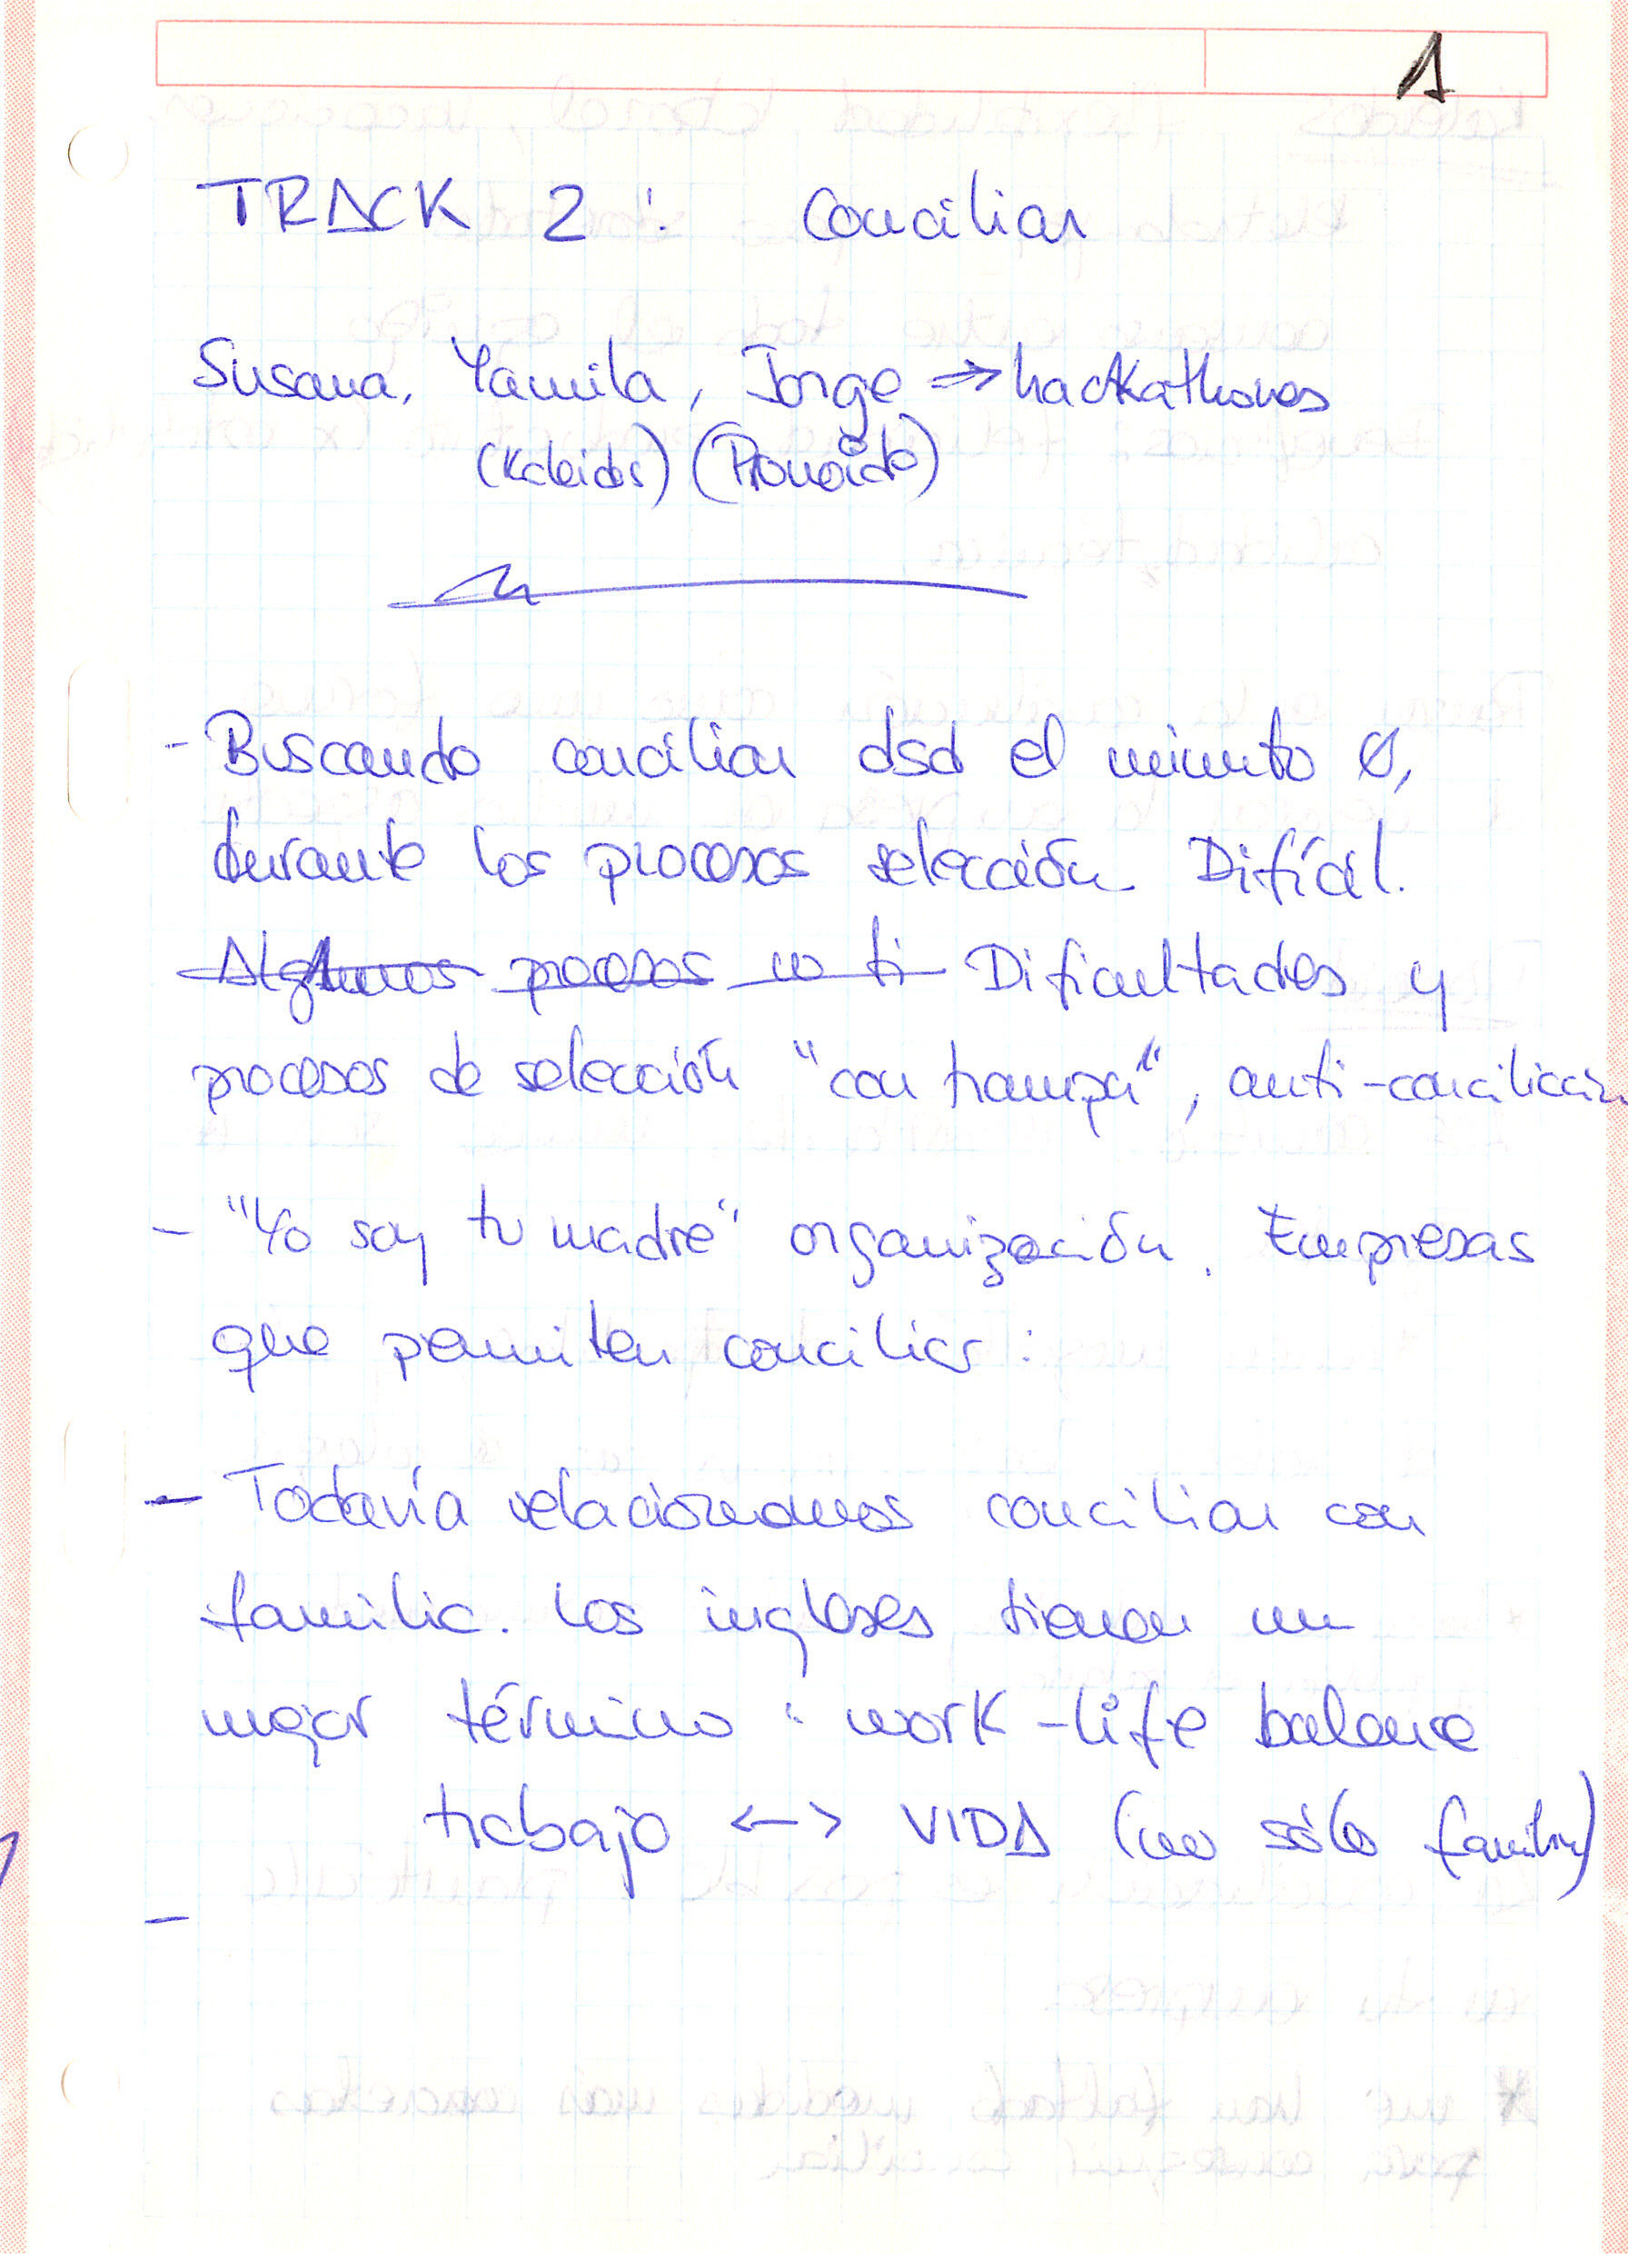 1
TRACK 2: Conciliar
Susana, Yamila, Jorge → hackathones
(Kaleidos)
- Buscando conciliar dsd el minuto 0,
durante los procesos selección Difícil.
Algunos procesos no ti Dificultades y
procesos de selección "con trampa", anti-conciliación
- "Yo soy tu madre" organización. Empresas
que permiten conciliar:
- Todavía relacionamos conciliar con
familia. Los ingleses tienen un
mejor término: work-life balance
trabajo <-> VIDA (no sólo familia)
-